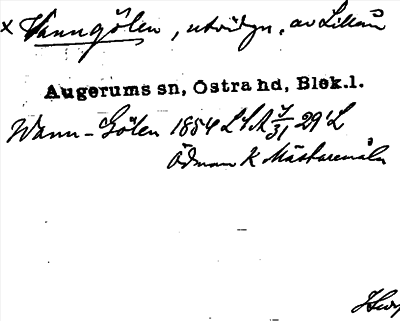 x Vanngölen, utvidgn. av Lillån
Augerums sn, Östra hd, Blek.l.
Wann-Gölen 1854 LSA 7/31 29'L
Ödman K Mästaremåla